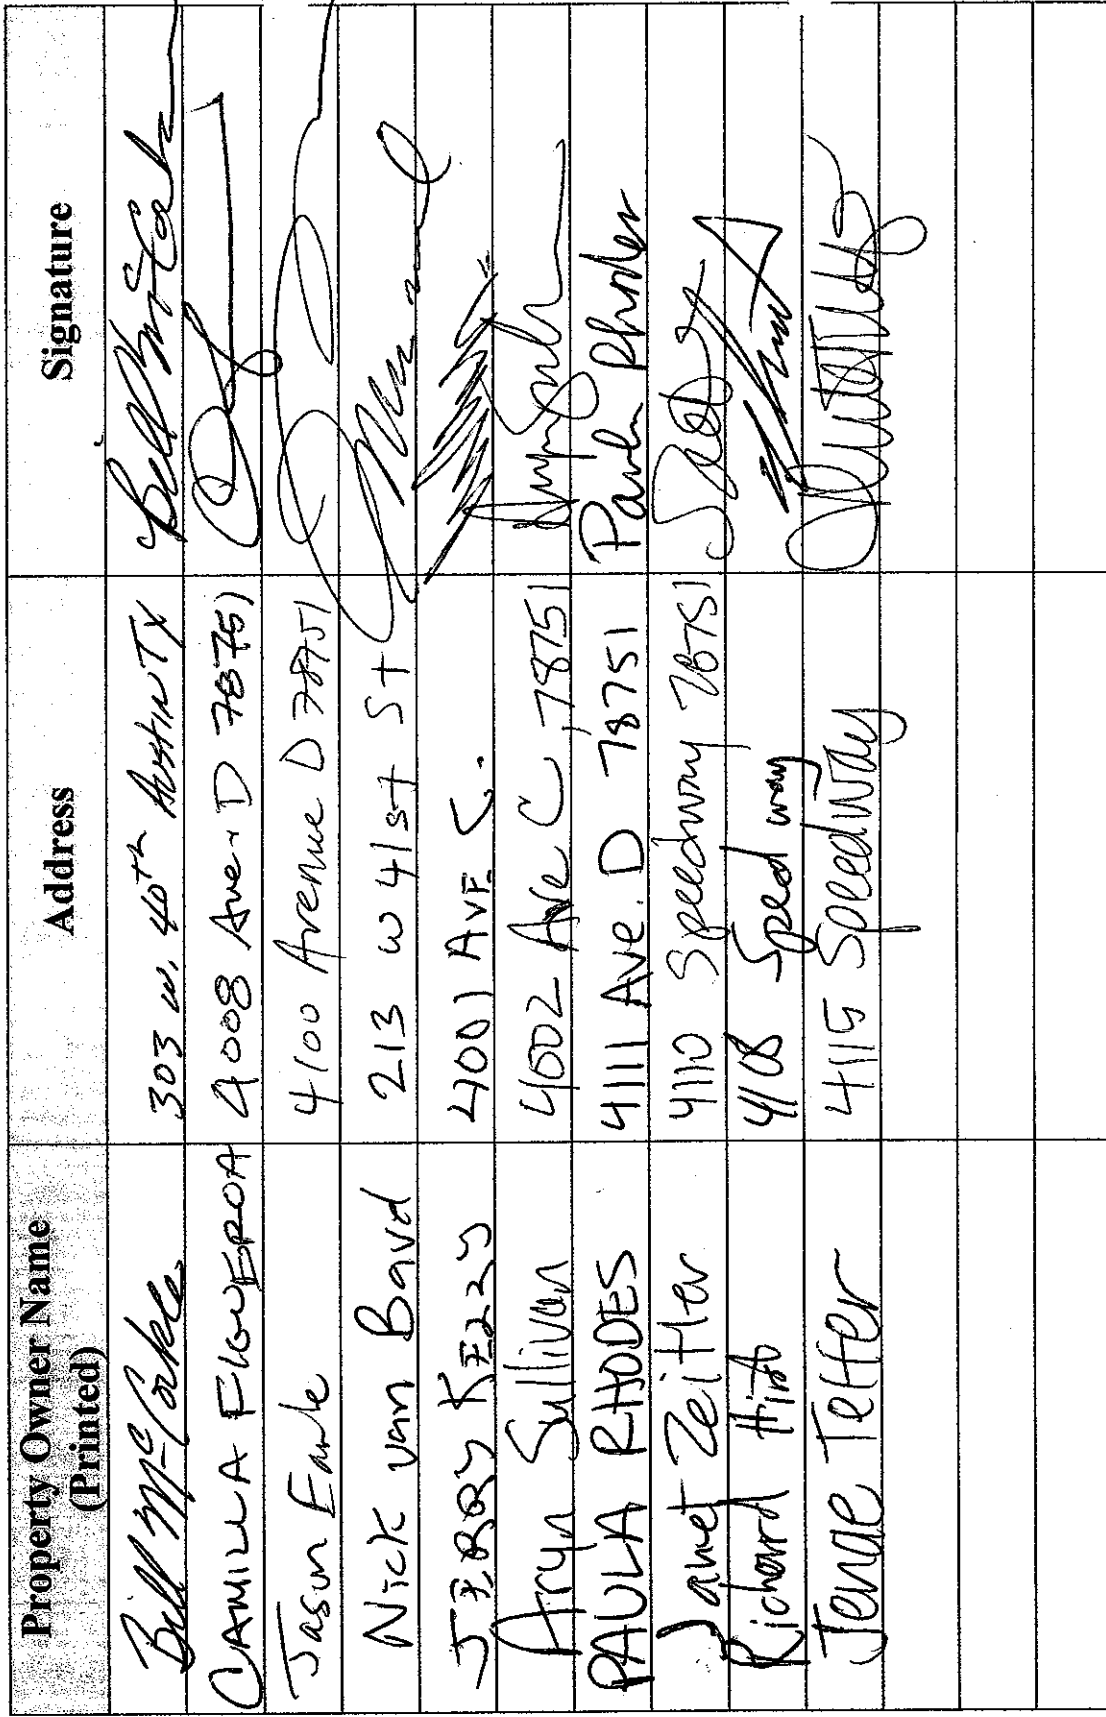 Property Owner Name (Printed) Address Signature
Bill McCorkle 303 w. 40th Austin TX Bill McCorkle
CAMILLA FIGUEROA 4008 Ave. D 78751
Jason Earle 4100 Avenue D 78751
Nick van Bavel 213 w 41st St
JERRY KEZZY 4001 AVE. C.
Aryn Sullivan 4002 Ave C, 78751
PAULA RHODES 4111 Ave. D 78751 Paula Rhodes
Janet Zeitler 4110 Speedway 78751
Richard 4108 Speedway
4115 Speedway